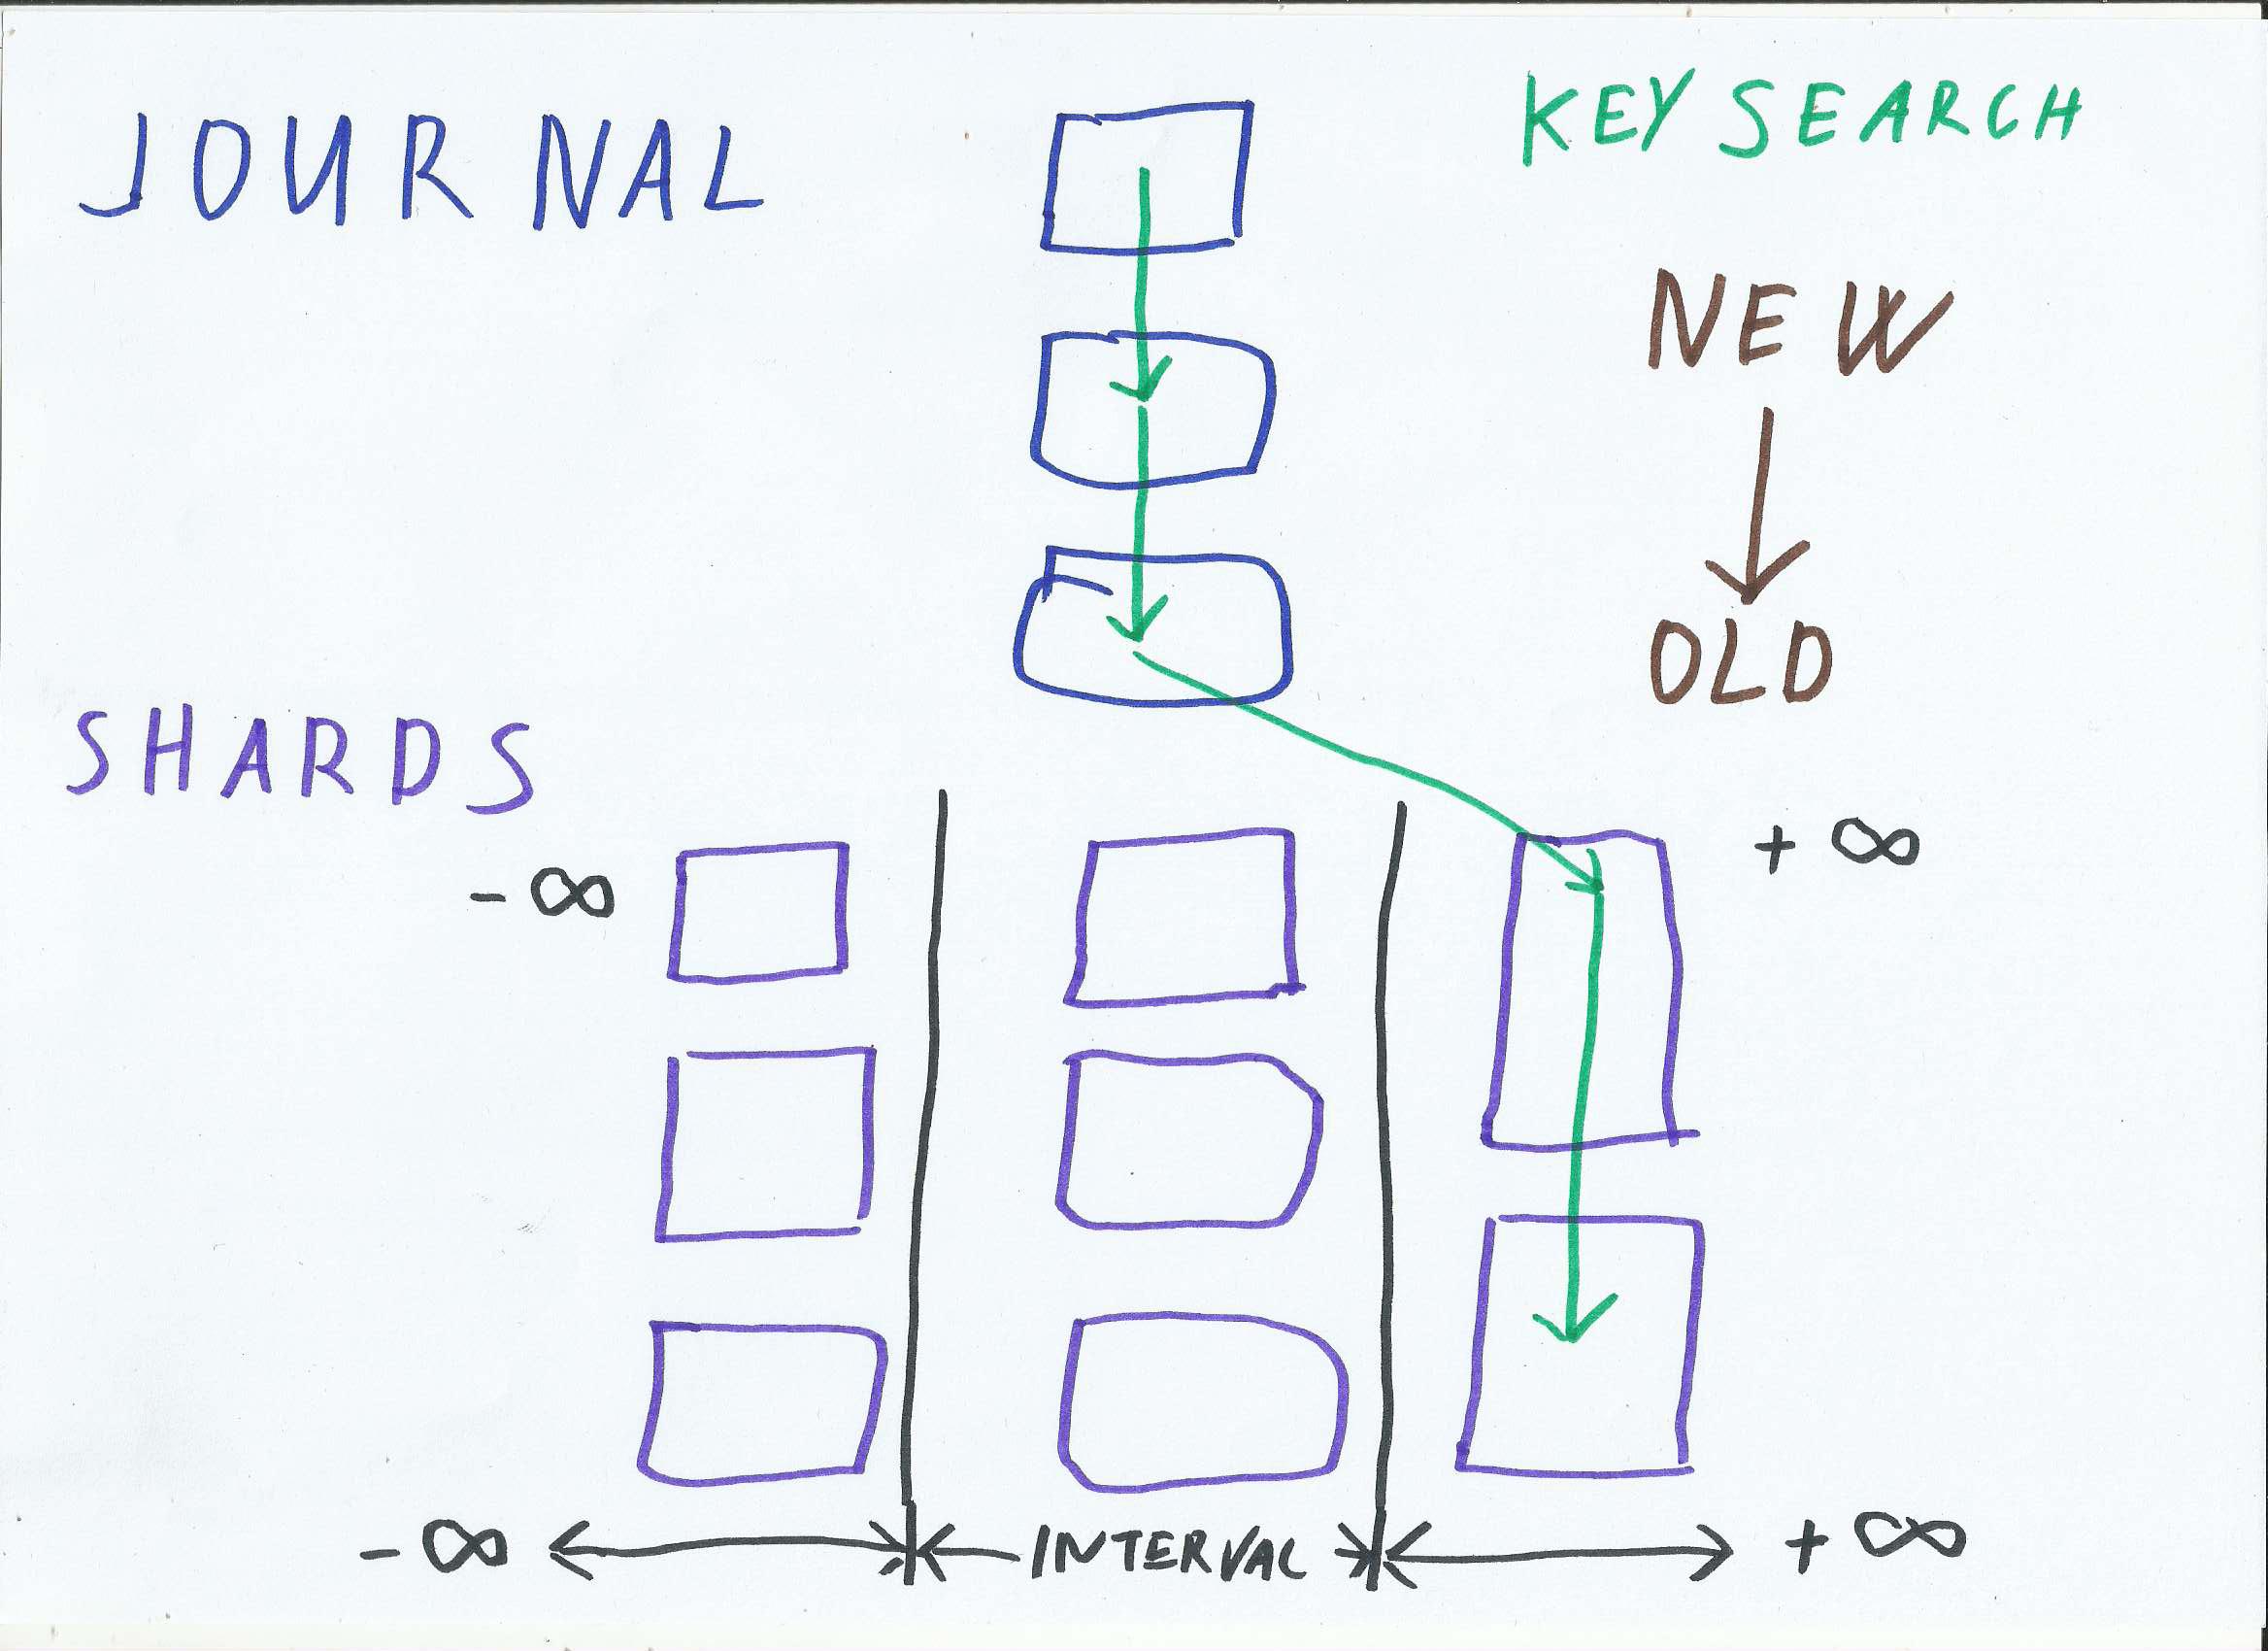 JOURNAL
KEY SEARCH
NEW
OLD
SHARDS
- ∞
+ ∞
- ∞
INTERVAL
+ ∞